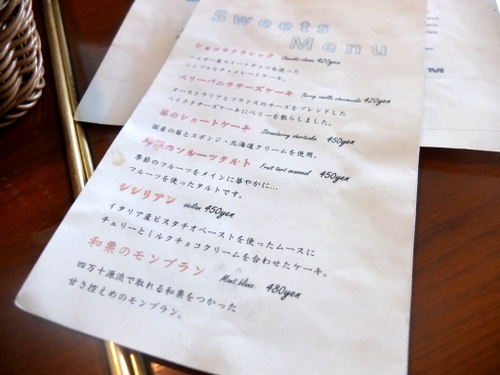 Sweets
Menu
ショコラクラシック Chocolat classic 420yen
ベルギー産スイートチョコを使った
シンプルなチョコレートケーキ。
ベリーバニラチーズケーキ Berry vanilla cheesecake 420yen
オーストラリアとフランスのチーズをブレンドした
ベイクドチーズケーキにベリーを散らしました。
苺のショートケーキ Strawberry shortcake 450yen
国産の苺とスポンジ・北海道クリームを使用。
のフルーツタルト Fruit tart seasonal 450yen
季節のフルーツをメインに華やかに…
フルーツを使ったタルトです。
シシリアン 450yen
イタリア産ピスタチオペーストを使ったムースに
チェリーとミルクチョコクリームを合わせたケーキ。
和栗のモンブラン Mont blanc 480yen
四万十源流で取れる和栗をつかった
甘さ控えめのモンブラン。